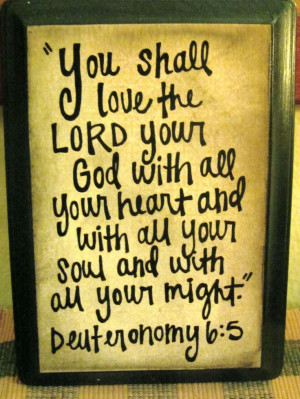 "You shall
love the
LORD your
God with all
your heart and
with all your
soul and with
all your might."
Deuteronomy 6:5